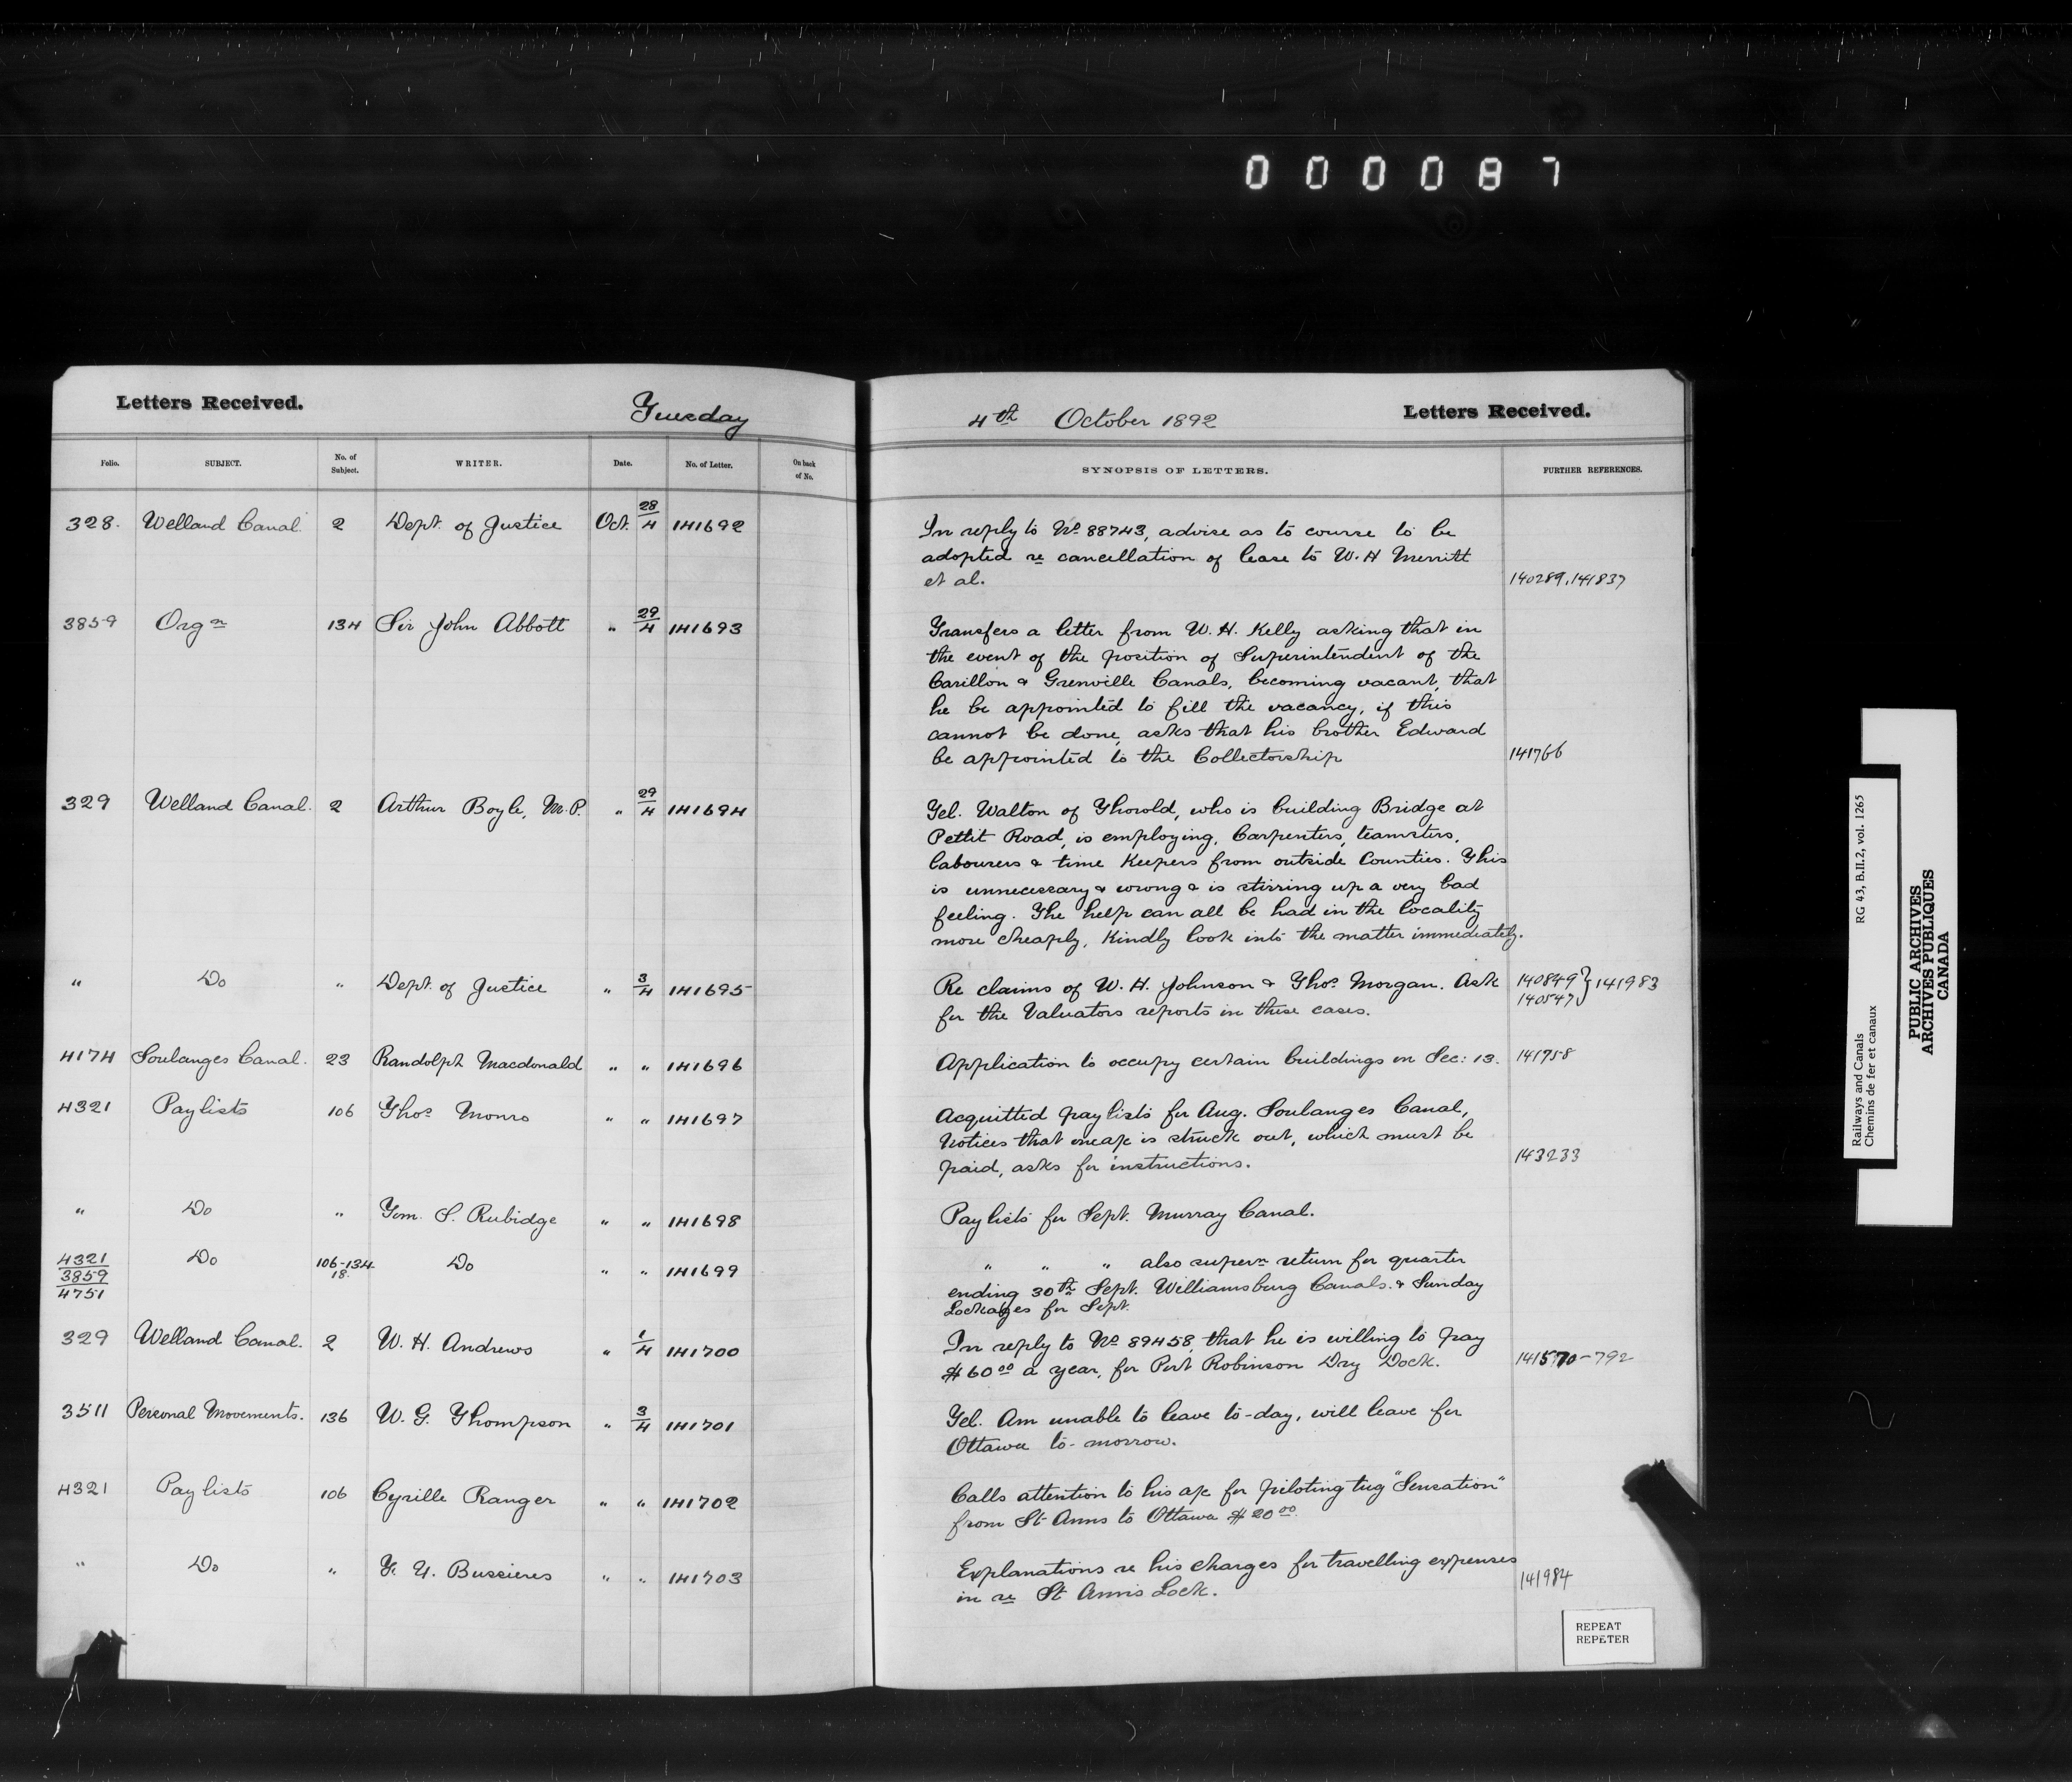 0 0 0 0 8 7
Letters Received. Tuesday 4th October 1892 Letters Received.
Folio. SUBJECT. No. of Subject. WRITER. Date. No. of Letter. On back of No. SYNOPSIS OF LETTERS. FURTHER REFERENCES.
328. Welland Canal. 2 Dept. of Justice Oct. 28/4 141692 In reply to No 88743, advise as to course to be
adopted re cancellation of lease to W. H Merritt
et al. 140289, 141837
3859 Orgn 134 Sir John Abbott " 29/4 141693 Transfers a letter from W. H. Kelly asking that in
the event of the position of Superintendent of the
Carillon & Grenville Canals, becoming vacant, that
he be appointed to fill the vacancy, if this
cannot be done, asks that his brother Edward
be appointed to the Collectorship 141766
329 Welland Canal. 2 Arthur Boyle, M.P. " 29/4 141694 Tel. Walton of Thorold, who is building Bridge at
Pettit Road, is employing, Carpenters, teamsters,
labourers & time Keepers from outside Counties. This
is unnecessary & wrong & is stirring up a very bad
feeling. The help can all be had in the locality
more cheaply, Kindly look into the matter immediately.
" Do " Dept. of Justice " 3/4 141695 Re claims of W. H. Johnson & Thos. Morgan. Ask 140849 } 141983
for the Valuators reports in these cases. 140547
4174 Soulanges Canal. 23 Randolph Macdonald " " 141696 Application to occupy certain buildings on Sec: 13. 141758
4321 Paylists 106 Thos. Monro " " 141697 Acquitted paylists for Aug. Soulanges Canal,
Notices that one a/c is struck out, which must be
paid, asks for instructions. 143233
" Do " Tom. S. Rubidge " " 141698 Paylists for Sept. Murray Canal.
4321/3859/4751 Do 106-134 18. Do " " 141699 " " " also supern return for quarter
ending 30th Sept. Williamsburg Canals. & Sunday
Lockages for Sept.
329 Welland Canal. 2 W. H. Andrews " 1/4 141700 In reply to No 89458, that he is willing to pay
$60 00 a year, for Port Robinson Dry Dock. 141570-792
3511 Personal Movements. 136 W. G. Thompson " 3/4 141701 Tel. Am unable to leave to-day, will leave for
Ottawa to-morrow.
4321 Paylists 106 Cyrille Ranger " " 141702 Calls attention to his a/c for piloting tug "Sensation"
from St Anns to Ottawa $20 00.
" Do " Bussieres " " 141703 Explanations re his charges for travelling expenses
in re St Anns Lock. 141984
REPEAT
REPETER
Railways and Canals RG 43, B.II.2, vol. 1265
Chemins de fer et canaux
PUBLIC ARCHIVES
ARCHIVES PUBLIQUES
CANADA